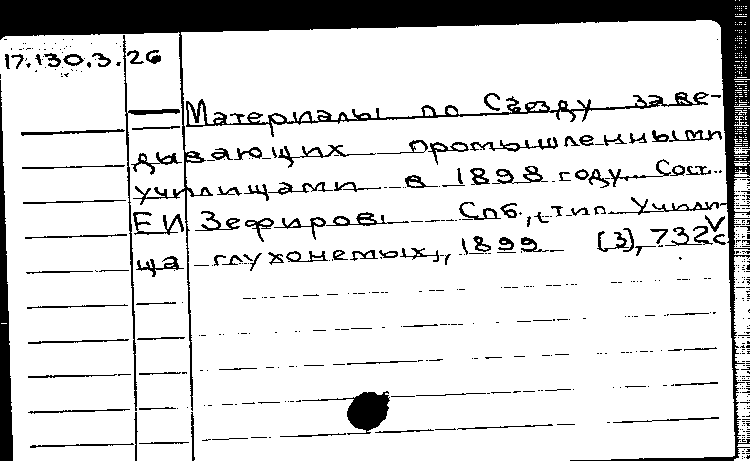 17.130.3.26
Материалы по Съезду заве-
дывающих промышленными
училищами в 1898 году... Сост.
Е И Зефиров. Спб., тип. Учили-
ща глухонемых, 1899 [3], 732 с